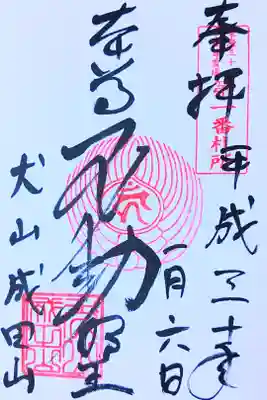 奉拝 平成三十年
一番札所
一月六日
本尊 不動明王
犬山成田山